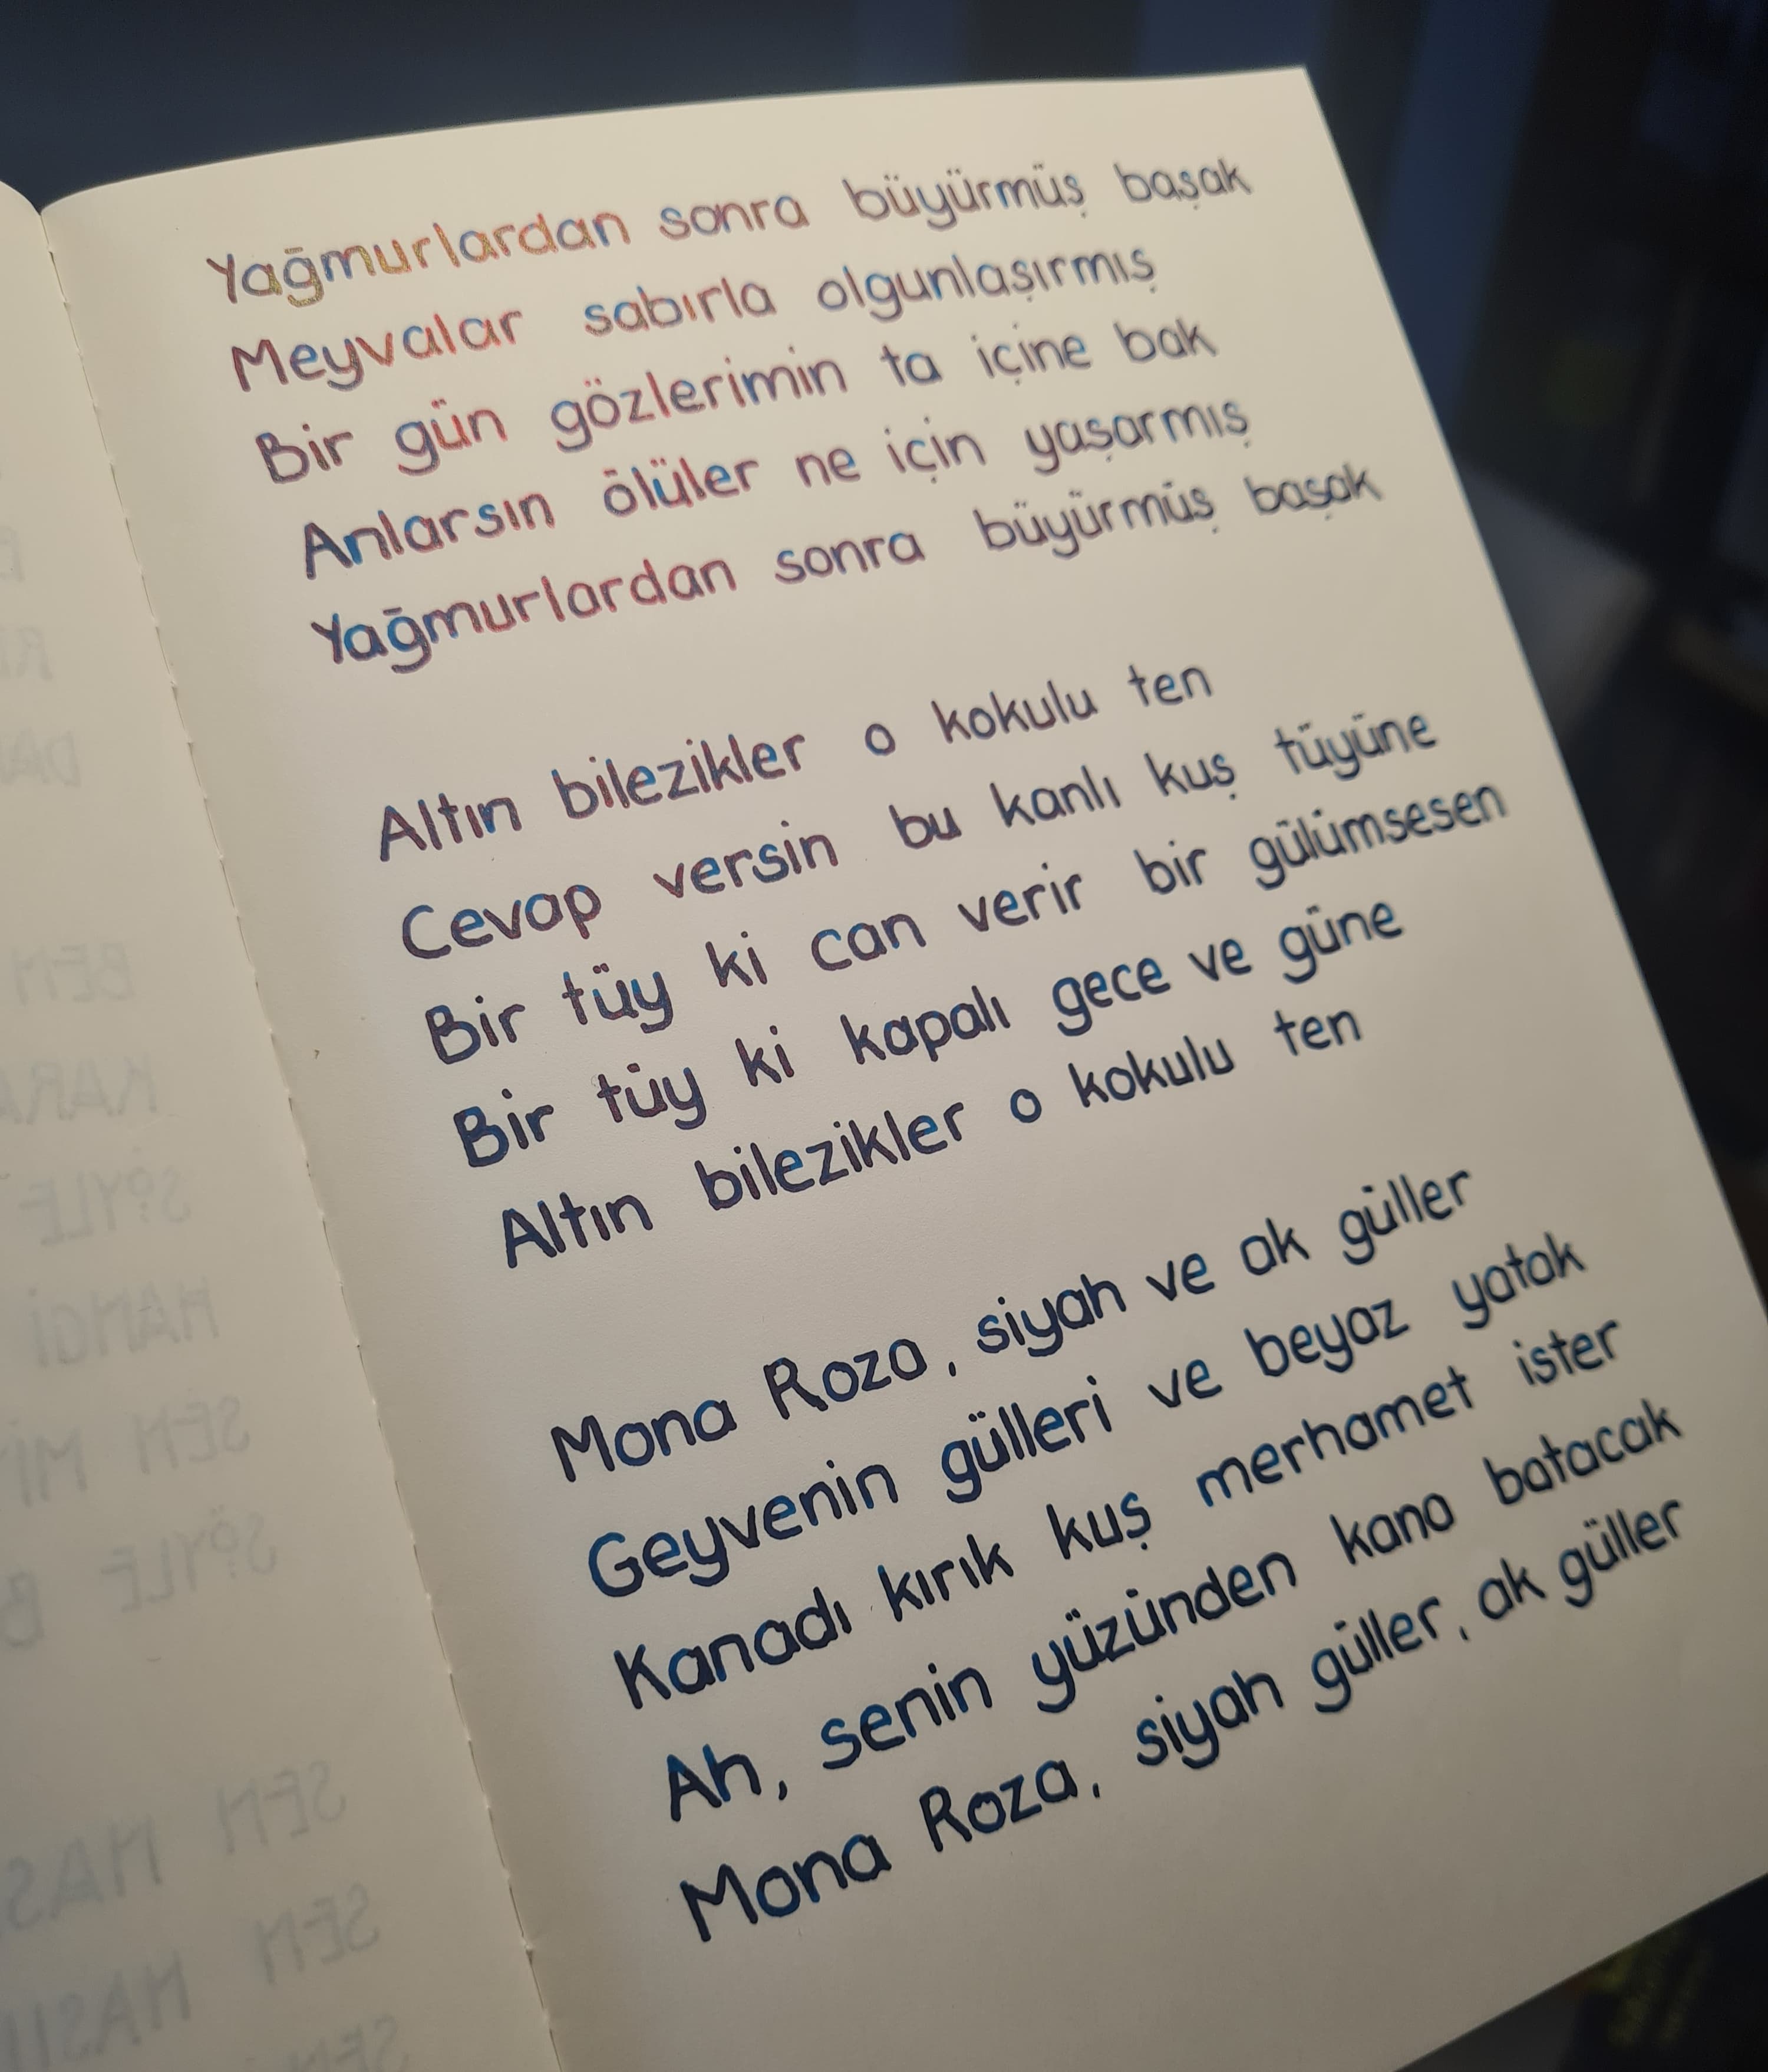 Yağmurlardan sonra büyürmüş başak
Meyvalar sabırla olgunlaşırmış
Bir gün gözlerimin ta içine bak
Anlarsın ölüler ne için yaşarmış
Yağmurlardan sonra büyürmüş başak
Altın bilezikler o kokulu ten
Cevap versin bu kanlı kuş tüyüne
Bir tüy ki can verir bir gülümsesen
Bir tüy ki kapalı gece ve güne
Altın bilezikler o kokulu ten
Mona Roza, siyah ve ak güller
Geyvenin gülleri ve beyaz yatak
Kanadı kırık kuş merhamet ister
Ah, senin yüzünden kana batacak
Mona Roza, siyah güller, ak güller